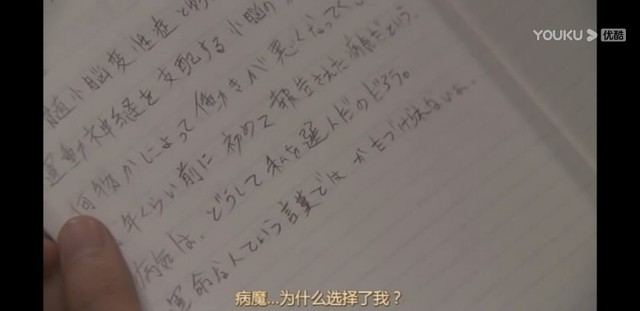 YOUKU 优酷
髄小脳変性症と
運動神経を支配する小脳の
何物かによって働きが悪くなってく
年くらい前に初めて報告された病気だという。
病気は、どうして私を選んだのだろう。
運命なんていう言葉ではかたづけられないよ。
病魔...为什么选择了我？